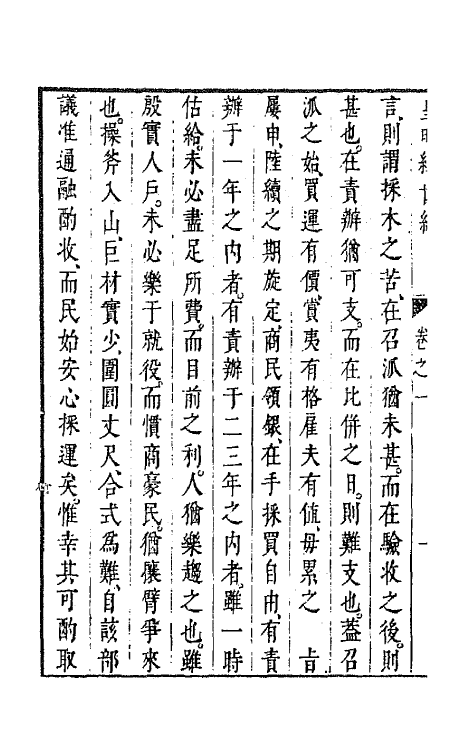 卷之一
言、則謂採木之苦、在召派猶未甚。而在驗收之後。則
甚也。在責辦猶可支。而在比併之日。則難支也。蓋召
派之始、買運有價、賞夷有格、雇夫有値、毋累之 旨
屢申、陸續之期旋定、商民領銀、在手採買自由、有責
辦于一年之內者。有責辦于二三年之內者。雖一時
估給。未必盡足所費。而目前之利。人猶樂趨之也。雖
殷實人戶。未必樂于就役。而慣商豪民。猶攘臂爭來
也。操斧入山、巨材實少、圍圓丈尺、合式為難、自該部
議准通融酌收、而民始安心採運矣。惟幸其可酌取